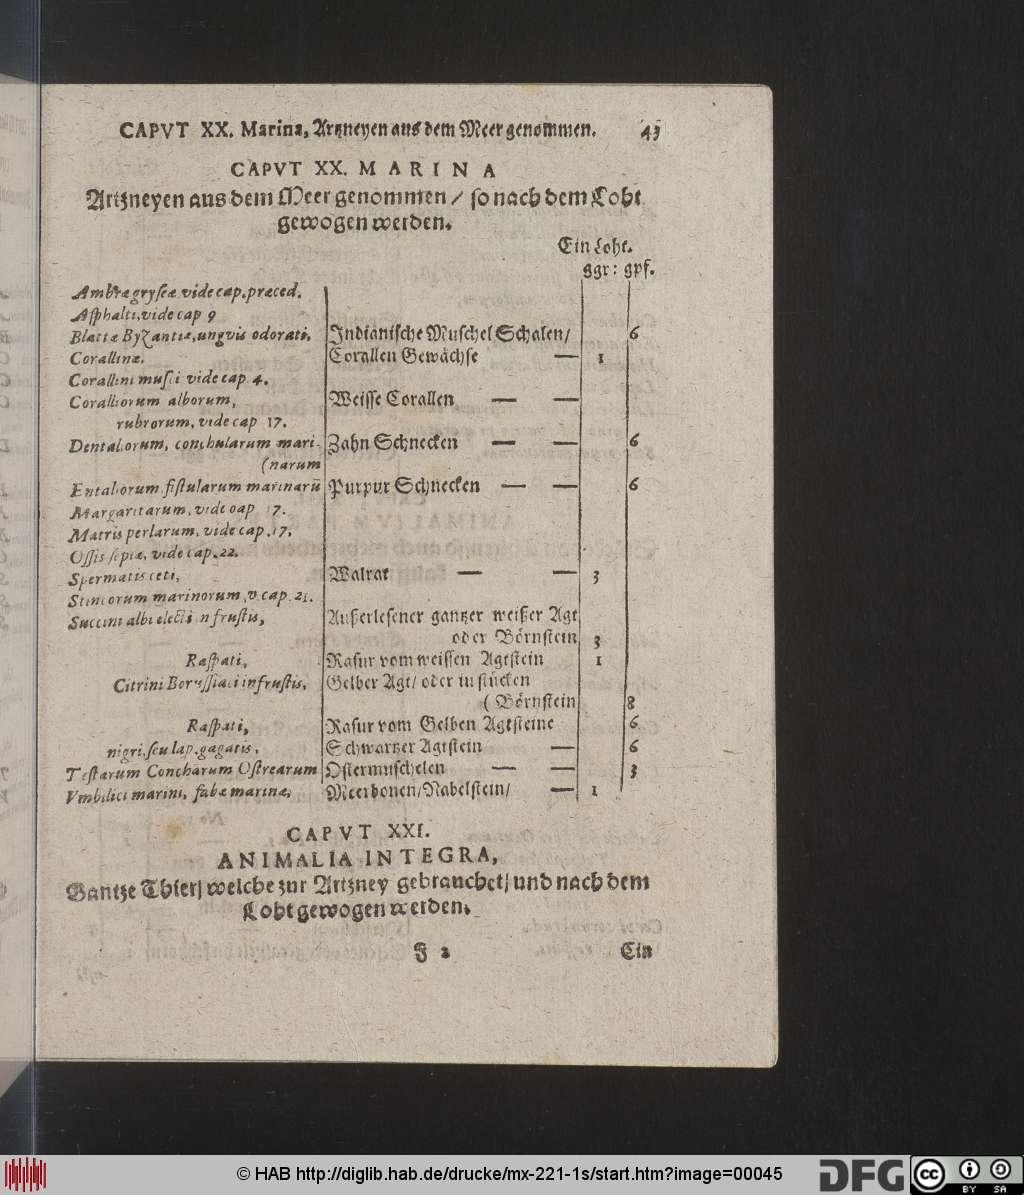 CAPVT XX. Marina, Artzneyen aus dem Meer genommen. 43
CAPVT XX. MARINA
Artzneyen aus dem Meer genommen / so nach dem Loht
gewogen werden.
Ein Loht.
ggr: gpf.
Ambræ gryseæ vide cap. præced.
Asphalti, vide cap 9
Blattæ Byzantiæ, ungvis odorati, Indianische Muschel Schalen/ 6
Corallinæ, Corallen Gewächse — 1
Corallini musci vide cap. 4.
Coralliorum alborum, Weisse Corallen — —
rubrorum, vide cap 17.
Dentaliorum, conchularum mari- Zahn Schnecken — — 6
(narum
Entaliorum, fistularum marinarū Purpur Schnecken — — 6
Margaritarum, vide cap 17.
Matris perlarum, vide cap. 17.
Ossis sepiæ, vide cap. 22.
Spermatis ceti, Walrat — — 3
Stincorum marinorum, v. cap. 21.
Succini albi electi in frustis, Außerlesener gantzer weißer Agt
oder Börnstein 3
Raspati, Rasur vom weissen Agtstein 1
Citrini Borussiaci in frustis, Gelber Agt/ oder in stücken
(Börnstein 8
Raspati, Rasur vom Gelben Agtsteine 6
nigri, seu lap. gagatis, Schwartzer Agtstein — 6
Testarum Concharum Ostrearum Ostermuschelen — — 3
Vmbilici marini, fabæ marinæ, Meerbonen/Nabelstein/ — 1
CAPVT XXI.
ANIMALIA INTEGRA,
Gantze Thier/ welche zur Artzney gebrauchet/ und nach dem
Loht gewogen werden.
F 2 Ein
© HAB http://diglib.hab.de/drucke/mx-221-1s/start.htm?image=00045
DFG
cc BY SA